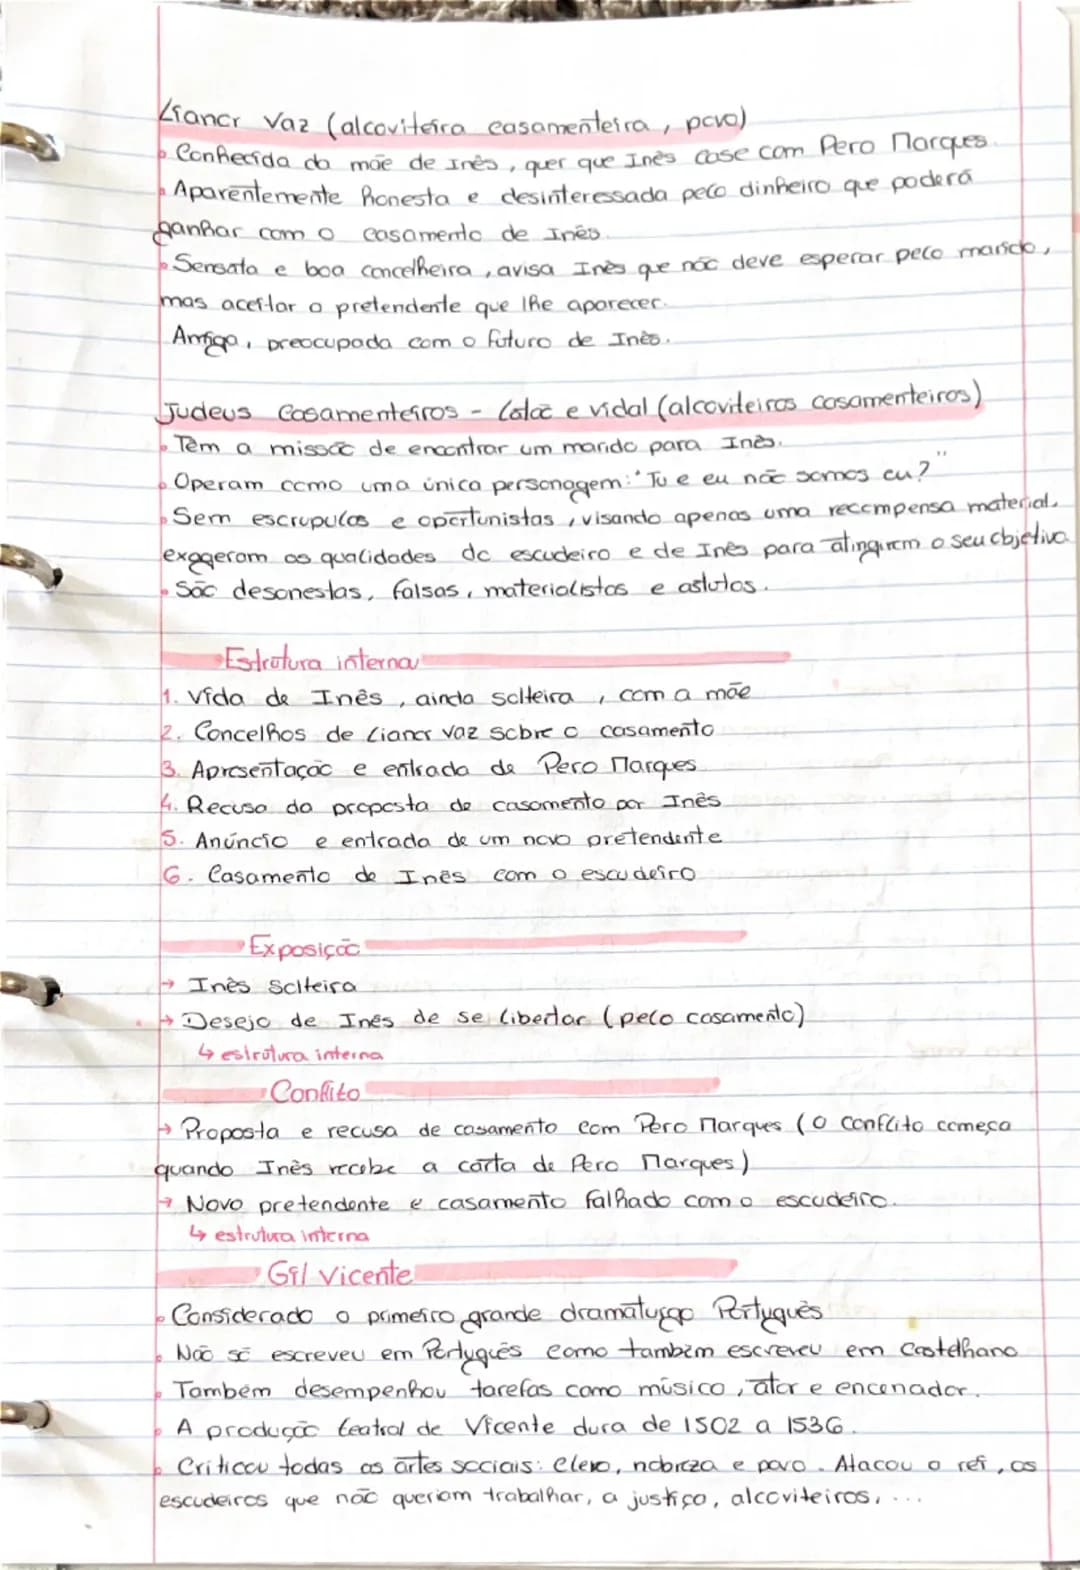 Lianor Vaz (alcoviteira casamenteira, povo)
• Conhecida da mãe de Inês, quer que Inês case com Pero Marques.
• Aparentemente honesta e desinteressada pelo dinheiro que poderá
ganhar com o casamento de Inês.
• Sensata e boa concelheira, avisa Inês que não deve esperar pelo marido,
mas aceitar o pretendente que lhe aparecer.
Amiga, preocupada com o futuro de Inês.
Judeus Casamenteiros - Latão e Vidal (alcoviteiros casamenteiros)
• Têm a missão de encontrar um marido para Inês.
• Operam como uma única personagem: "Tu e eu não somos eu?"
• Sem escrupulos e oportunistas, visando apenas uma recompensa material.
exageram as qualidades do escudeiro e de Inês para atingirem o seu objetivo
• São desonestas, falsas, materialistas e astutos.
Estrutura interna
1. Vida de Inês, ainda solteira, com a mãe
2. Concelhos de Lianor Vaz sobre o casamento
3. Apresentação e entrada de Pero Marques
4. Recusa da proposta de casamento por Inês
5. Anúncio e entrada de um novo pretendente
6. Casamento de Inês com o escudeiro
Exposição
→ Inês Solteira
→ Desejo de Inês de se libertar (pelo casamento)
↳ estrutura interna
Conflito
→ Proposta e recusa de casamento com Pero Marques (O conflito começa
quando Inês recebe a carta de Pero Marques)
→ Novo pretendente e casamento falhado com o escudeiro.
↳ estrutura interna
Gil Vicente
• Considerado o primeiro grande dramaturgo Português
• Não só escreveu em Português como também escreveu em Castelhano
• Também desempenhou tarefas como músico, ator e encenador.
• A produção teatral de Vicente dura de 1502 a 1536.
• Criticou todas as artes sociais: Clero, nobreza e povo. Atacou o rei, os
escudeiros que não queriam trabalhar, a justiça, alcoviteiros, ...